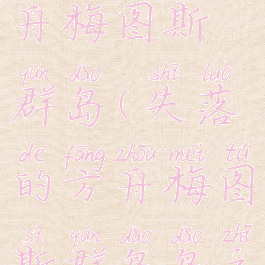 舟梅图斯
qún dǎo shī luò
群岛(失落
de fāng zhōu méi tú
的方舟梅图
sī qún dǎo dǎo zhī
斯群岛岛之